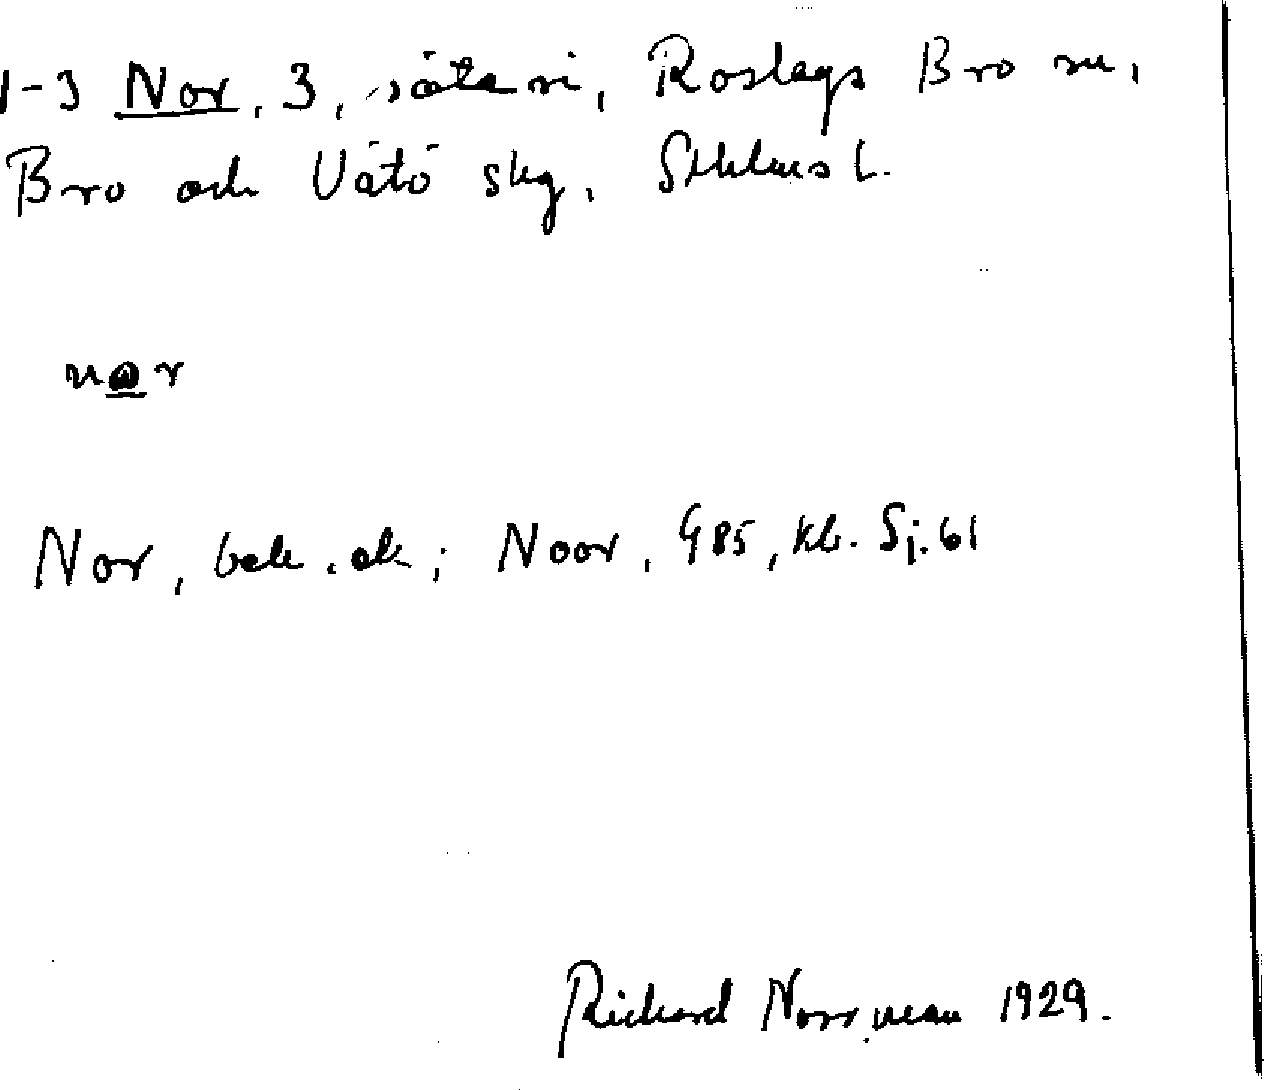 1-3 Nor, 3, säteri, Roslags Bro sn,
Bro och Vätö skg, Sthlms l.
Nor, bek. ek; Noor, G85, kb. Sj. 61
Richard Norrman 1929.